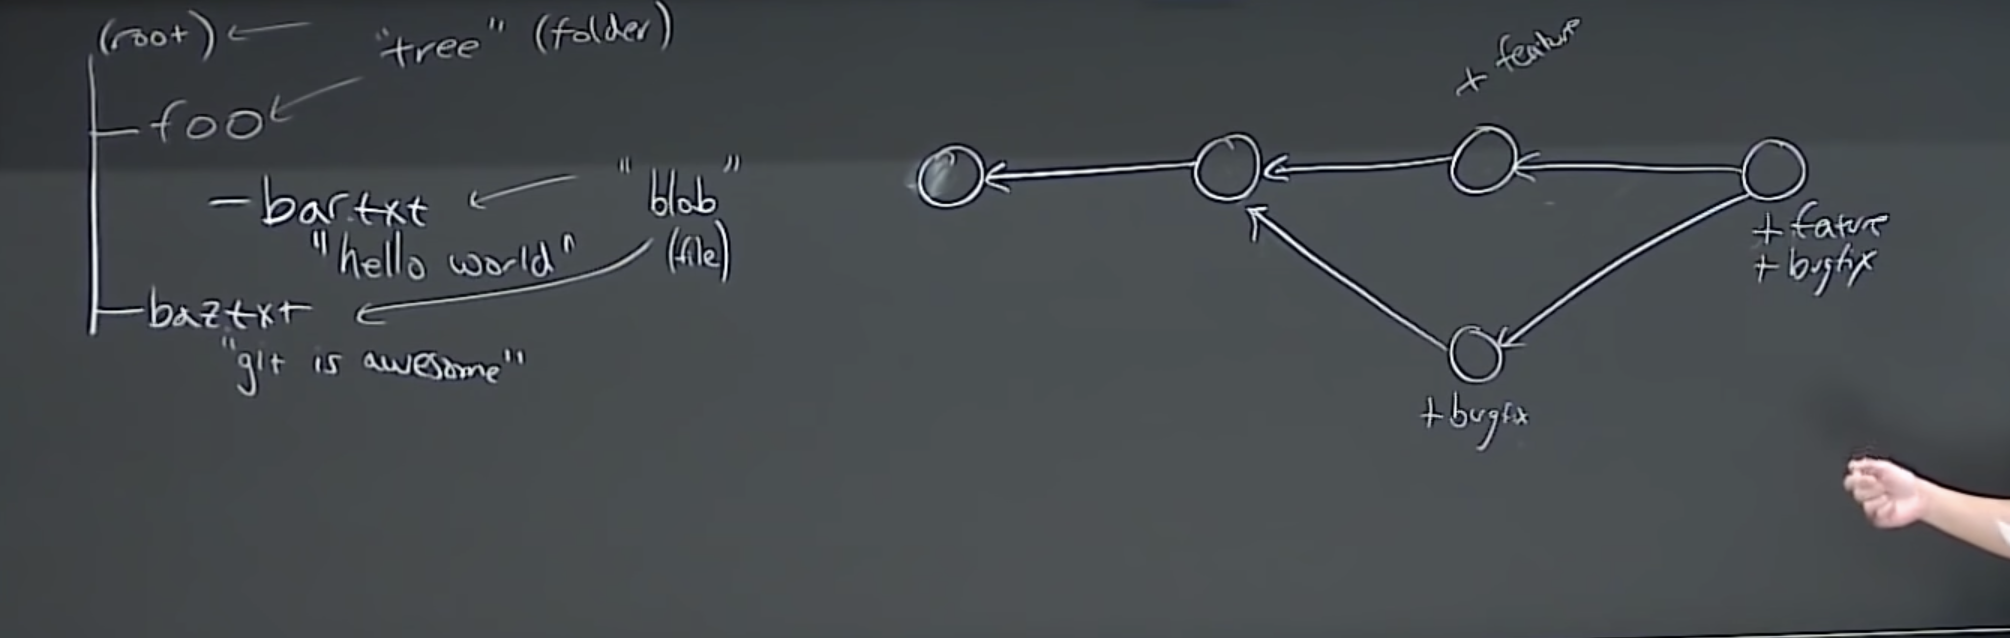 (root)
"tree" (folder)
foo
bar.txt
"blob"
(file)
"hello world"
baz.txt
"git is awesome"
+ feature
+ fature
+ bugfix
+ bugfix